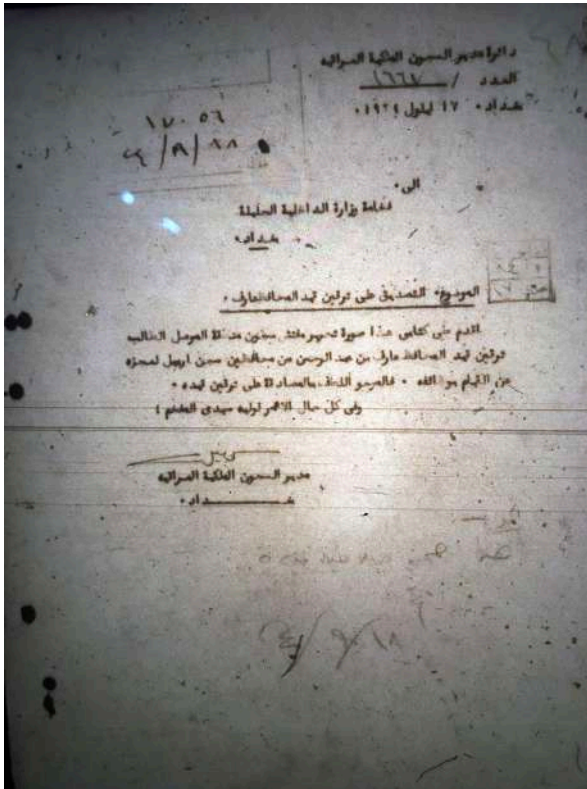 دائرة مدير السجون الملكية العراقية
العدد / ١٦٦٧
بغداد ١٧ ايلول ١٩٢٤٠
١٧٠٥٦
الى٠
فخامة وزارة الداخلية الجليلة
بغداد٠
الموضوع٠ التصديق على ترقين قيد المحافظ عارف ٠
اقدم طي كتابي هذا صورة تحرير مفتش سجون منطقة الموصل الطالب
ترقين قيد المحافظ عارف بن عبد الرحمن من محافظين سجن اربيل لعجزه
عن القيام بوظائفه ٠ فالمرجو اللطف بالمصادقة على ترقين قيده ٠
وفي كل حال الامر لوليه سيدي المفخم ؛
مدير السجون الملكية العراقية
بغــــداد٠